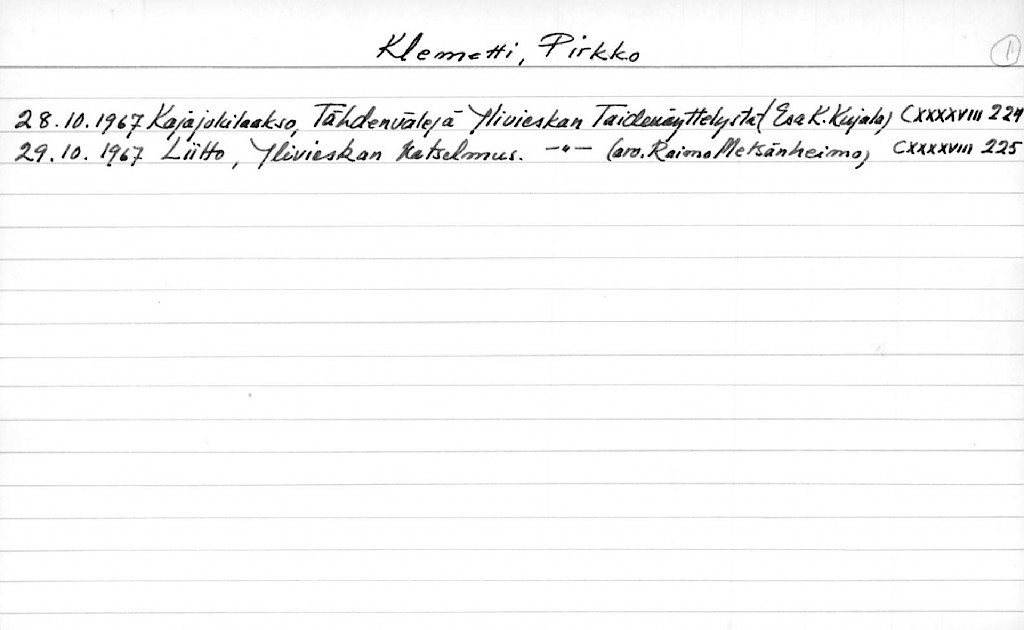 Klemetti, Pirkko 1
28.10.1967 Kajajokilaakso, Tähdenvälejä Ylivieskan Taidenäyttelystä (Esa K. Kujala) CXXXXVIII 224
29.10.1967 Liitto, Ylivieskan Katselmus. -"- (arv. Raimo Metsänheimo) CXXXXVIII 225